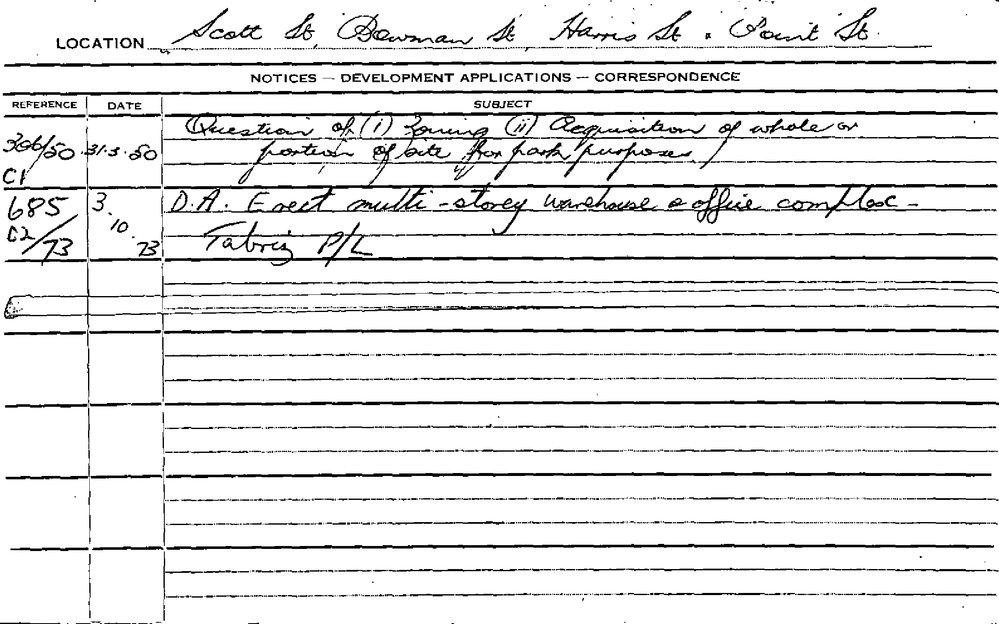 LOCATION Scott St, Bowman St, Harris St & Point St.
NOTICES — DEVELOPMENT APPLICATIONS — CORRESPONDENCE
REFERENCE DATE SUBJECT
Question of (i) Zoning (ii) Acquisition of whole or
306/50 31.3.50 portion of site for park purposes.
C1
685 3 D.A. Erect multi-storey warehouse & office complex -
C2/73 10.73 Tabriz P/L